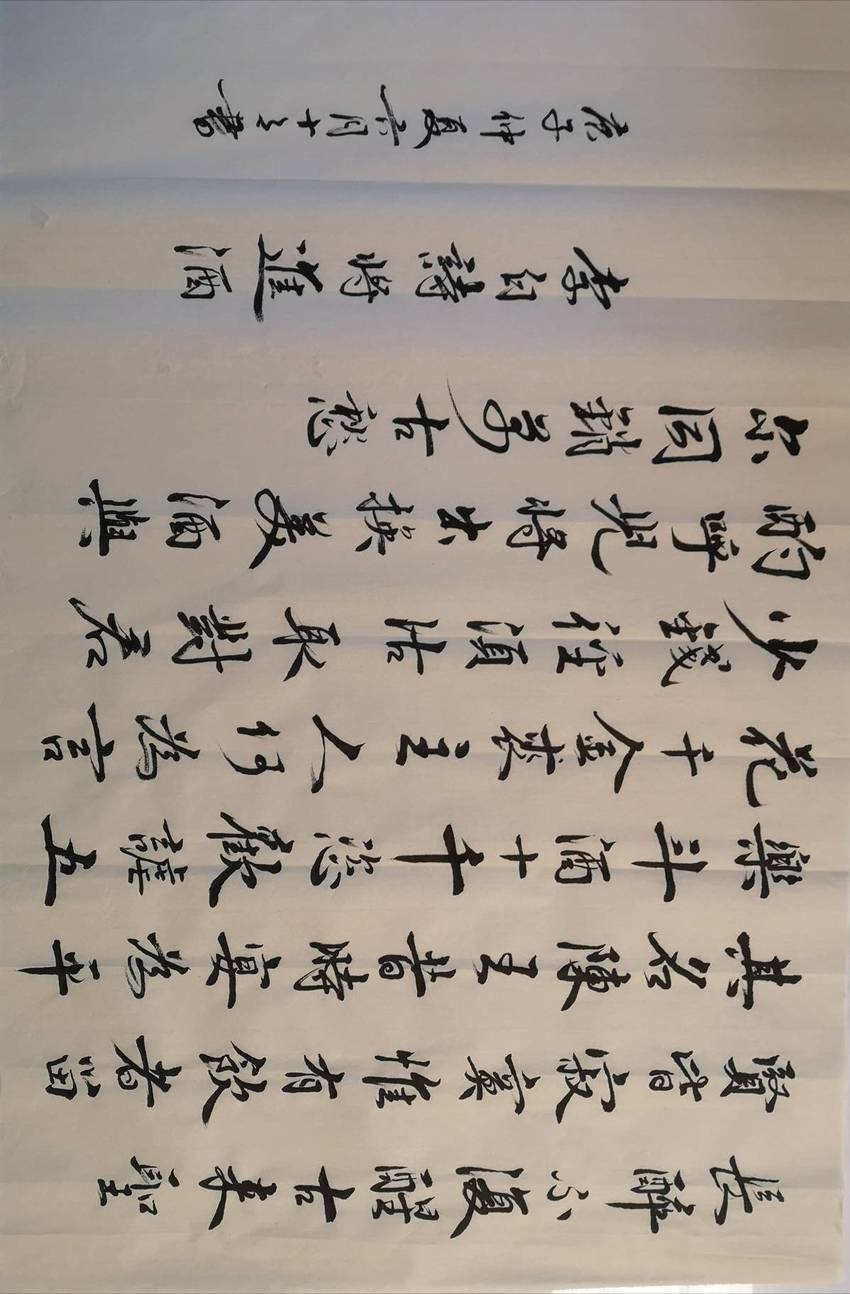 長醉不復醒古来聖
賢皆寂寞惟有飲者留
其名陳王昔時宴為平
樂斗酒十千恣歡謔五
花千金裘主人何為言
少錢徑須沽取對君
酌呼兒將出換美酒與
尔同銷万古愁
李白詩將進酒
庚子仲夏六月十三書